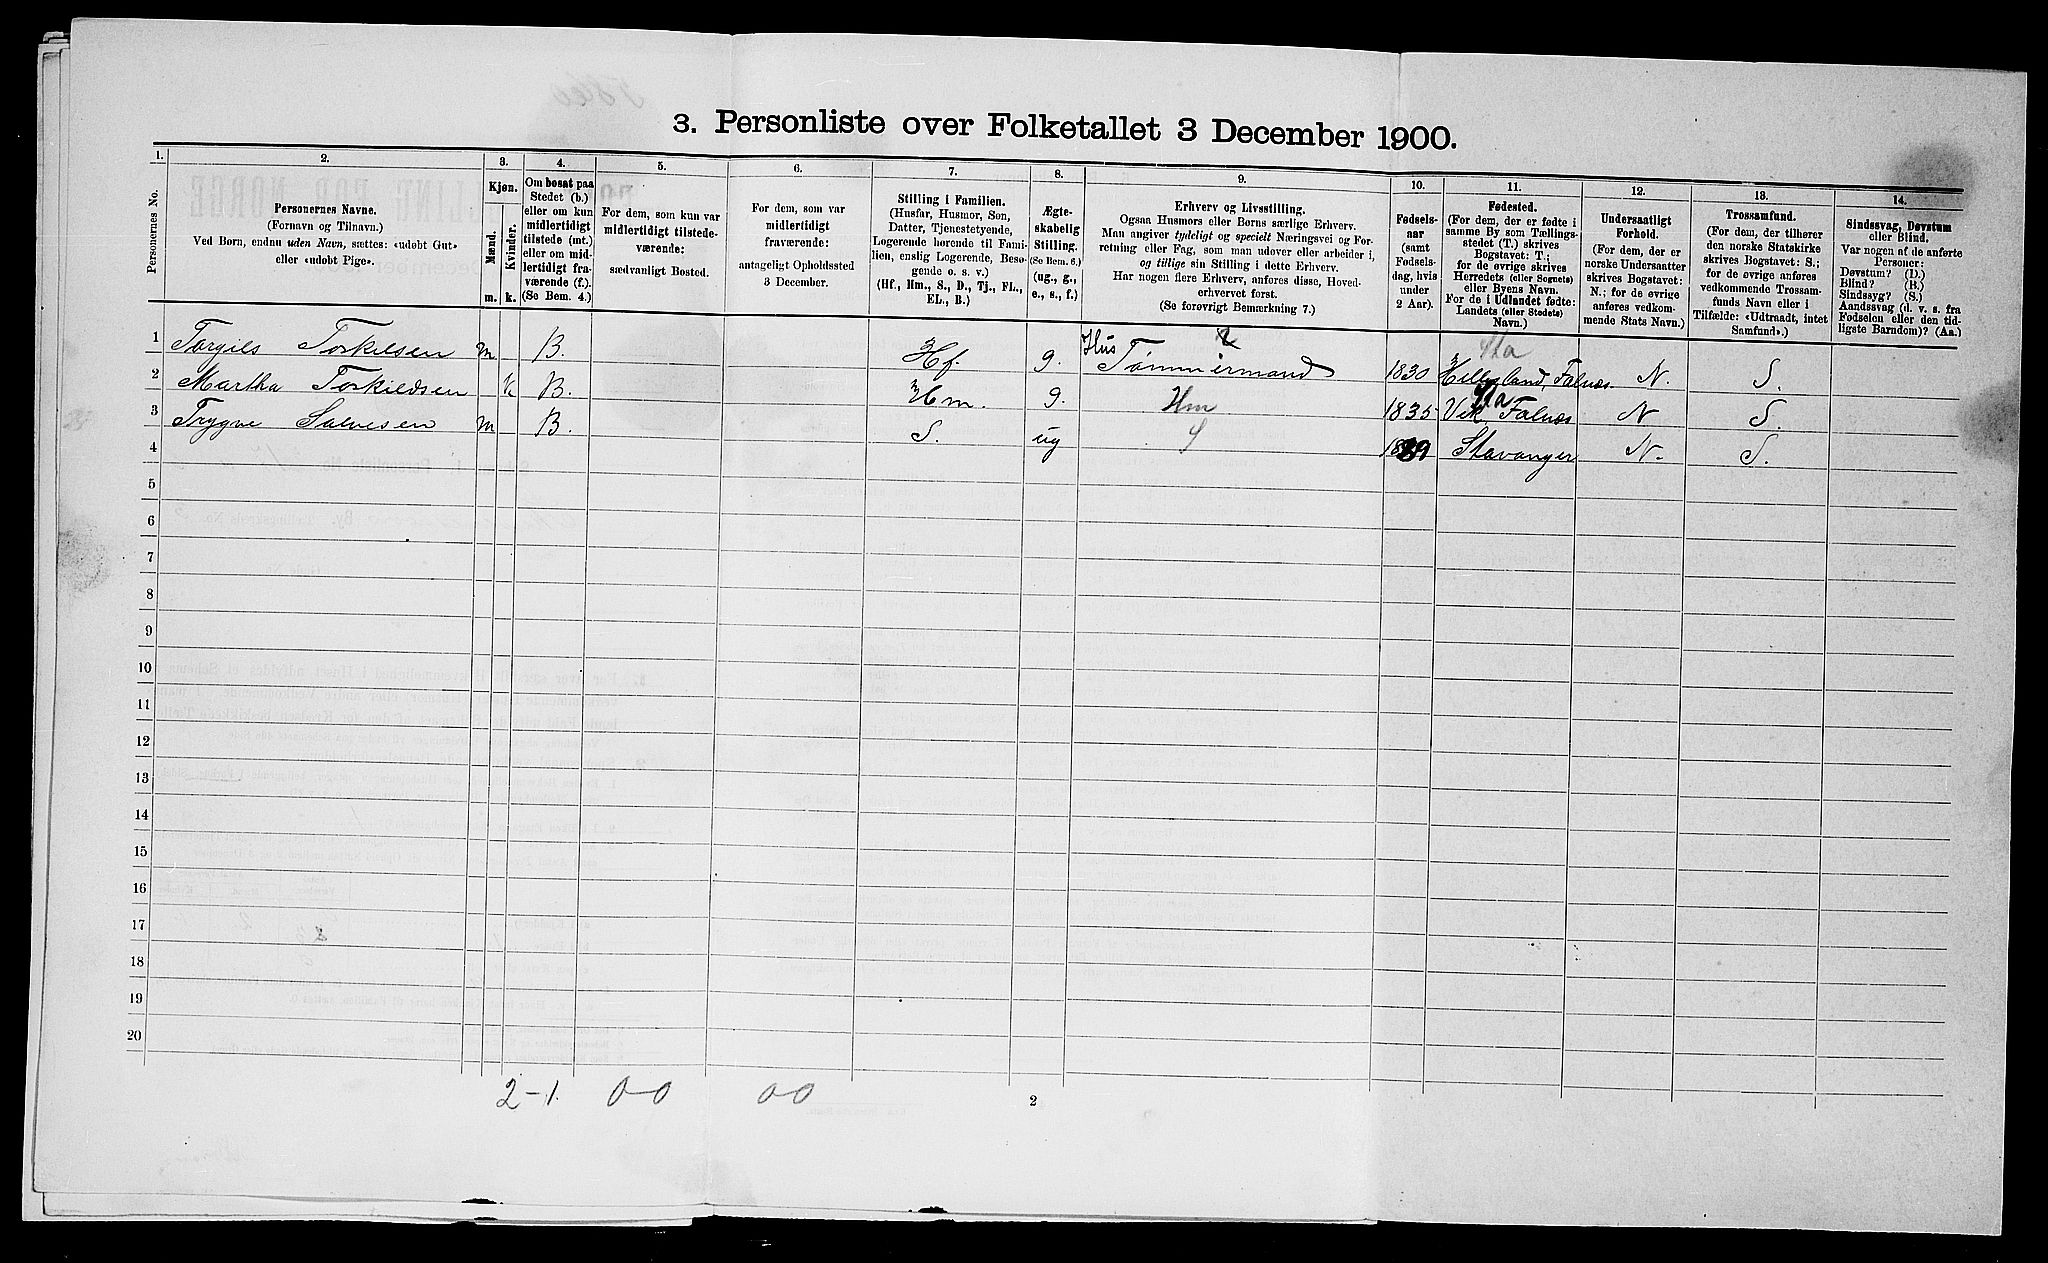 3. Personliste over Folketallet 3 December 1900.
1. 2. 3. 4. 5. 6. 7. 8. 9. 10. 11. 12. 13. 14.
Personernes No.
Personernes Navne.
(Fornavn og Tilnavn.)
Ved Børn, endnu uden Navn, sættes: «udøbt Gut»
eller «udøbt Pige».
Kjøn.
Mænd.
Kvinder.
m. k.
Om bosat paa
Stedet (b.)
eller om kun
midlertidigt
tilstede (mt.)
eller om mid-
lertidigt fra-
værende (f.).
(Se Bem. 4.)
For dem, som kun var
midlertidigt tilstede-
værende:
sædvanligt Bosted.
For dem, som var
midlertidigt
fraværende:
antageligt Opholdssted
3 December.
Stilling i Familien.
(Husfar, Husmor, Søn,
Datter, Tjenestetyende,
Logerende hørende til Fami-
lien, enslig Logerende, Besø-
gende o. s. v.)
(Hf., Hm., S., D., Tj., FL.,
EL., B.)
Ægte-
skabelig
Stilling.
(Se Bem. 6.)
(ug., g.,
e., s., f.)
Erhverv og Livsstilling.
Ogsaa Husmors eller Børns særlige Erhverv.
Man angiver tydeligt og specielt Næringsvei og For-
retning eller Fag, som man udøver eller arbeider i,
og tillige sin Stilling i dette Erhverv.
Har nogen flere Erhverv, anføres disse, Hoved-
erhvervet først.
(Se forøvrigt Bemærkning 7.)
Fødsels-
aar
(samt
Fødsels-
dag, hvis
under
2 Aar).
Fødested.
(For dem, der er fødte i
samme By som Tællings-
stedet (T.) skrives
Bogstavet: T.;
for de øvrige skrives
Herredets (eller Sognets)
eller Byens Navn.
For de i Udlandet fødte:
Landets (eller Stedets)
Navn.)
Undersaatligt
Forhold.
(For dem, der er
norske Undersaatter
skrives Bogstavet:
N.; for de øvrige
anføres vedkom-
mende Stats Navn.)
Trossamfund.
(For dem, der tilhører
den norske Statskirke
skrives Bogstavet: S.;
for de øvrige anføres
vedkommende Trossam-
funds Navn eller i
Tilfælde: «Udtraadt, intet
Samfund».)
Sindssvag, Døvstum
eller Blind.
Var nogen af de anførte
Personer:
Døvstum? (D.)
Blind? (B.)
Sindssyg? (S.)
Aandssvag (d. v. s. fra
Fødselen eller den tid-
ligste Barndom)? (Aa.)
1 Torgils Torkilsen m B. Hf. g. Hus Tømmermand 1830 Sta Falnæs N. S.
2 Martha Torkildsen K B. Hm. g. Hm 1835 Sta Vik, Falnæs N S.
3 Trygve Salvesen m B. S. ug S 1889 Stavanger N. S.
4
5
6
7
8
9
10
11
12
13
14
15
16
17
18
19
20
2-1. 0-0 00
2